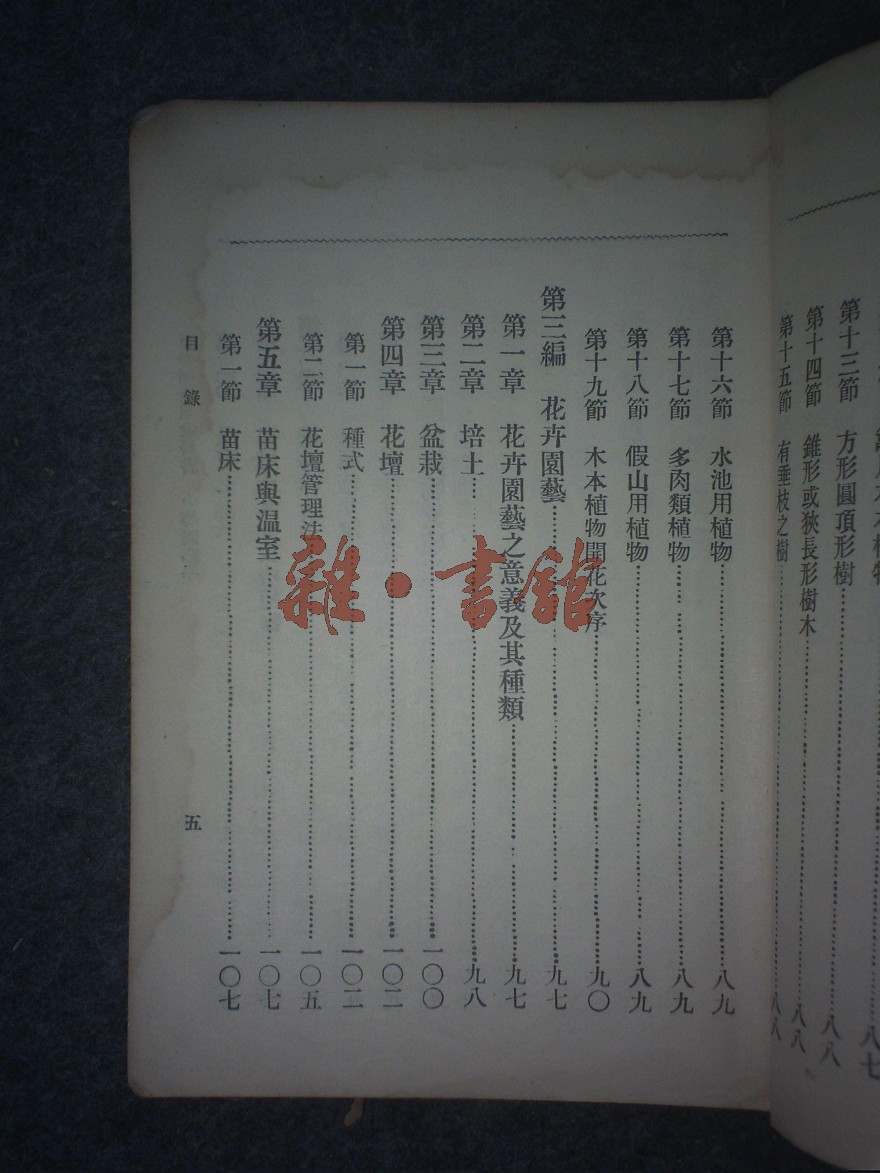 第十三節　方形圓頂形樹……八八
第十四節　錐形或狹長形樹木……八八
第十五節　有垂枝之樹……八八
第十六節　水池用植物……八九
第十七節　多肉類植物……八九
第十八節　假山用植物……八九
第十九節　木本植物開花次序……九〇
第三編　花卉園藝……九七
第一章　花卉園藝之意義及其種類……九七
第二章　培土……九八
第三章　盆栽……一〇〇
第四章　花壇……一〇二
第一節　種式……一〇二
第二節　花壇管理法……一〇五
第五章　苗床與温室……一〇七
第一節　苗床……一〇七
目錄　五
雜·書館